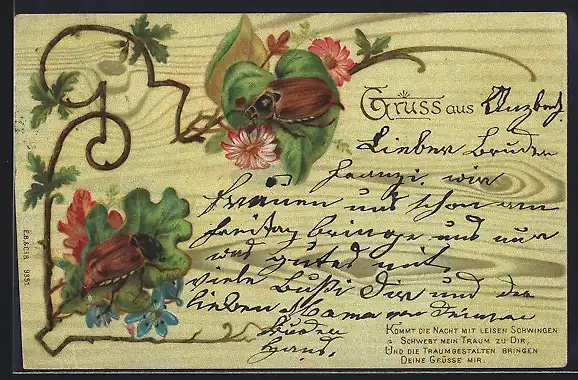 Gruss aus Anzbach.
Lieber Bruder
Franzi, wir
freuen uns schon am
Freitag bringe uns nur
was gutes mit,
viele Bußi Dir und der
lieben Mama von Deinem
Bruder
Hans.
Kommt die Nacht mit leisen Schwingen
Schwebt mein Traum zu Dir,
Und die Traumgestalten bringen
Deine Grüsse mir.
E.B.&C.i.B. 935.